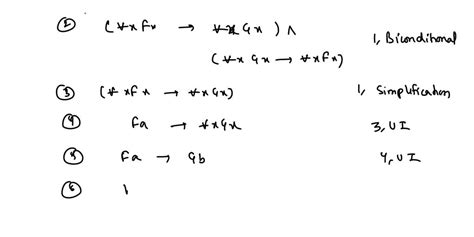 ② (∀x Fx → ∀x Gx) ∧
(∀x Gx → ∀x Fx) 1, Biconditional
③ (∀xFx → ∀xGx) 1, Simplification
④ Fa → ∀xGx 3, UI
⑤ Fa → Gb 4, UI
⑥